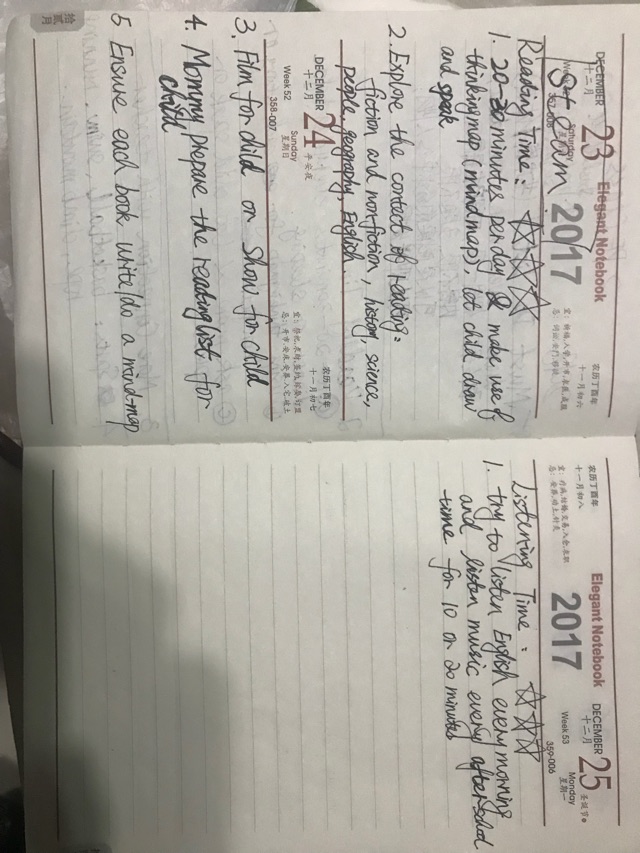 DECEMBER 23 Elegant Notebook
十二月 Saturday 2017
Sat 8am
农历丁酉年
十一月初六
Reading Time: ☆☆☆
1. 20-30 minutes per day & make use of
thinking map (mind map), lot child draw
and speak
2. Explore the contact of reading:
fiction and nonfiction, history, science,
people, geography, English.
DECEMBER 24 平安夜
十二月
Sunday
星期日
Week 52
358-007
农历丁酉年
十一月初七
3. Film for child or Show for child
4. Mommy prepare the reading list for
child
5 Ensure each book write/do a mind-map
拾贰月
农历丁酉年
十一月初八
Elegant Notebook
2017
DECEMBER 25 圣诞节
十二月
Monday
星期一
Week 53
359-006
Listening Time: ☆☆☆
1. try to listen English every morning
and listen music every afterschool
time for 10 or 20 minutes